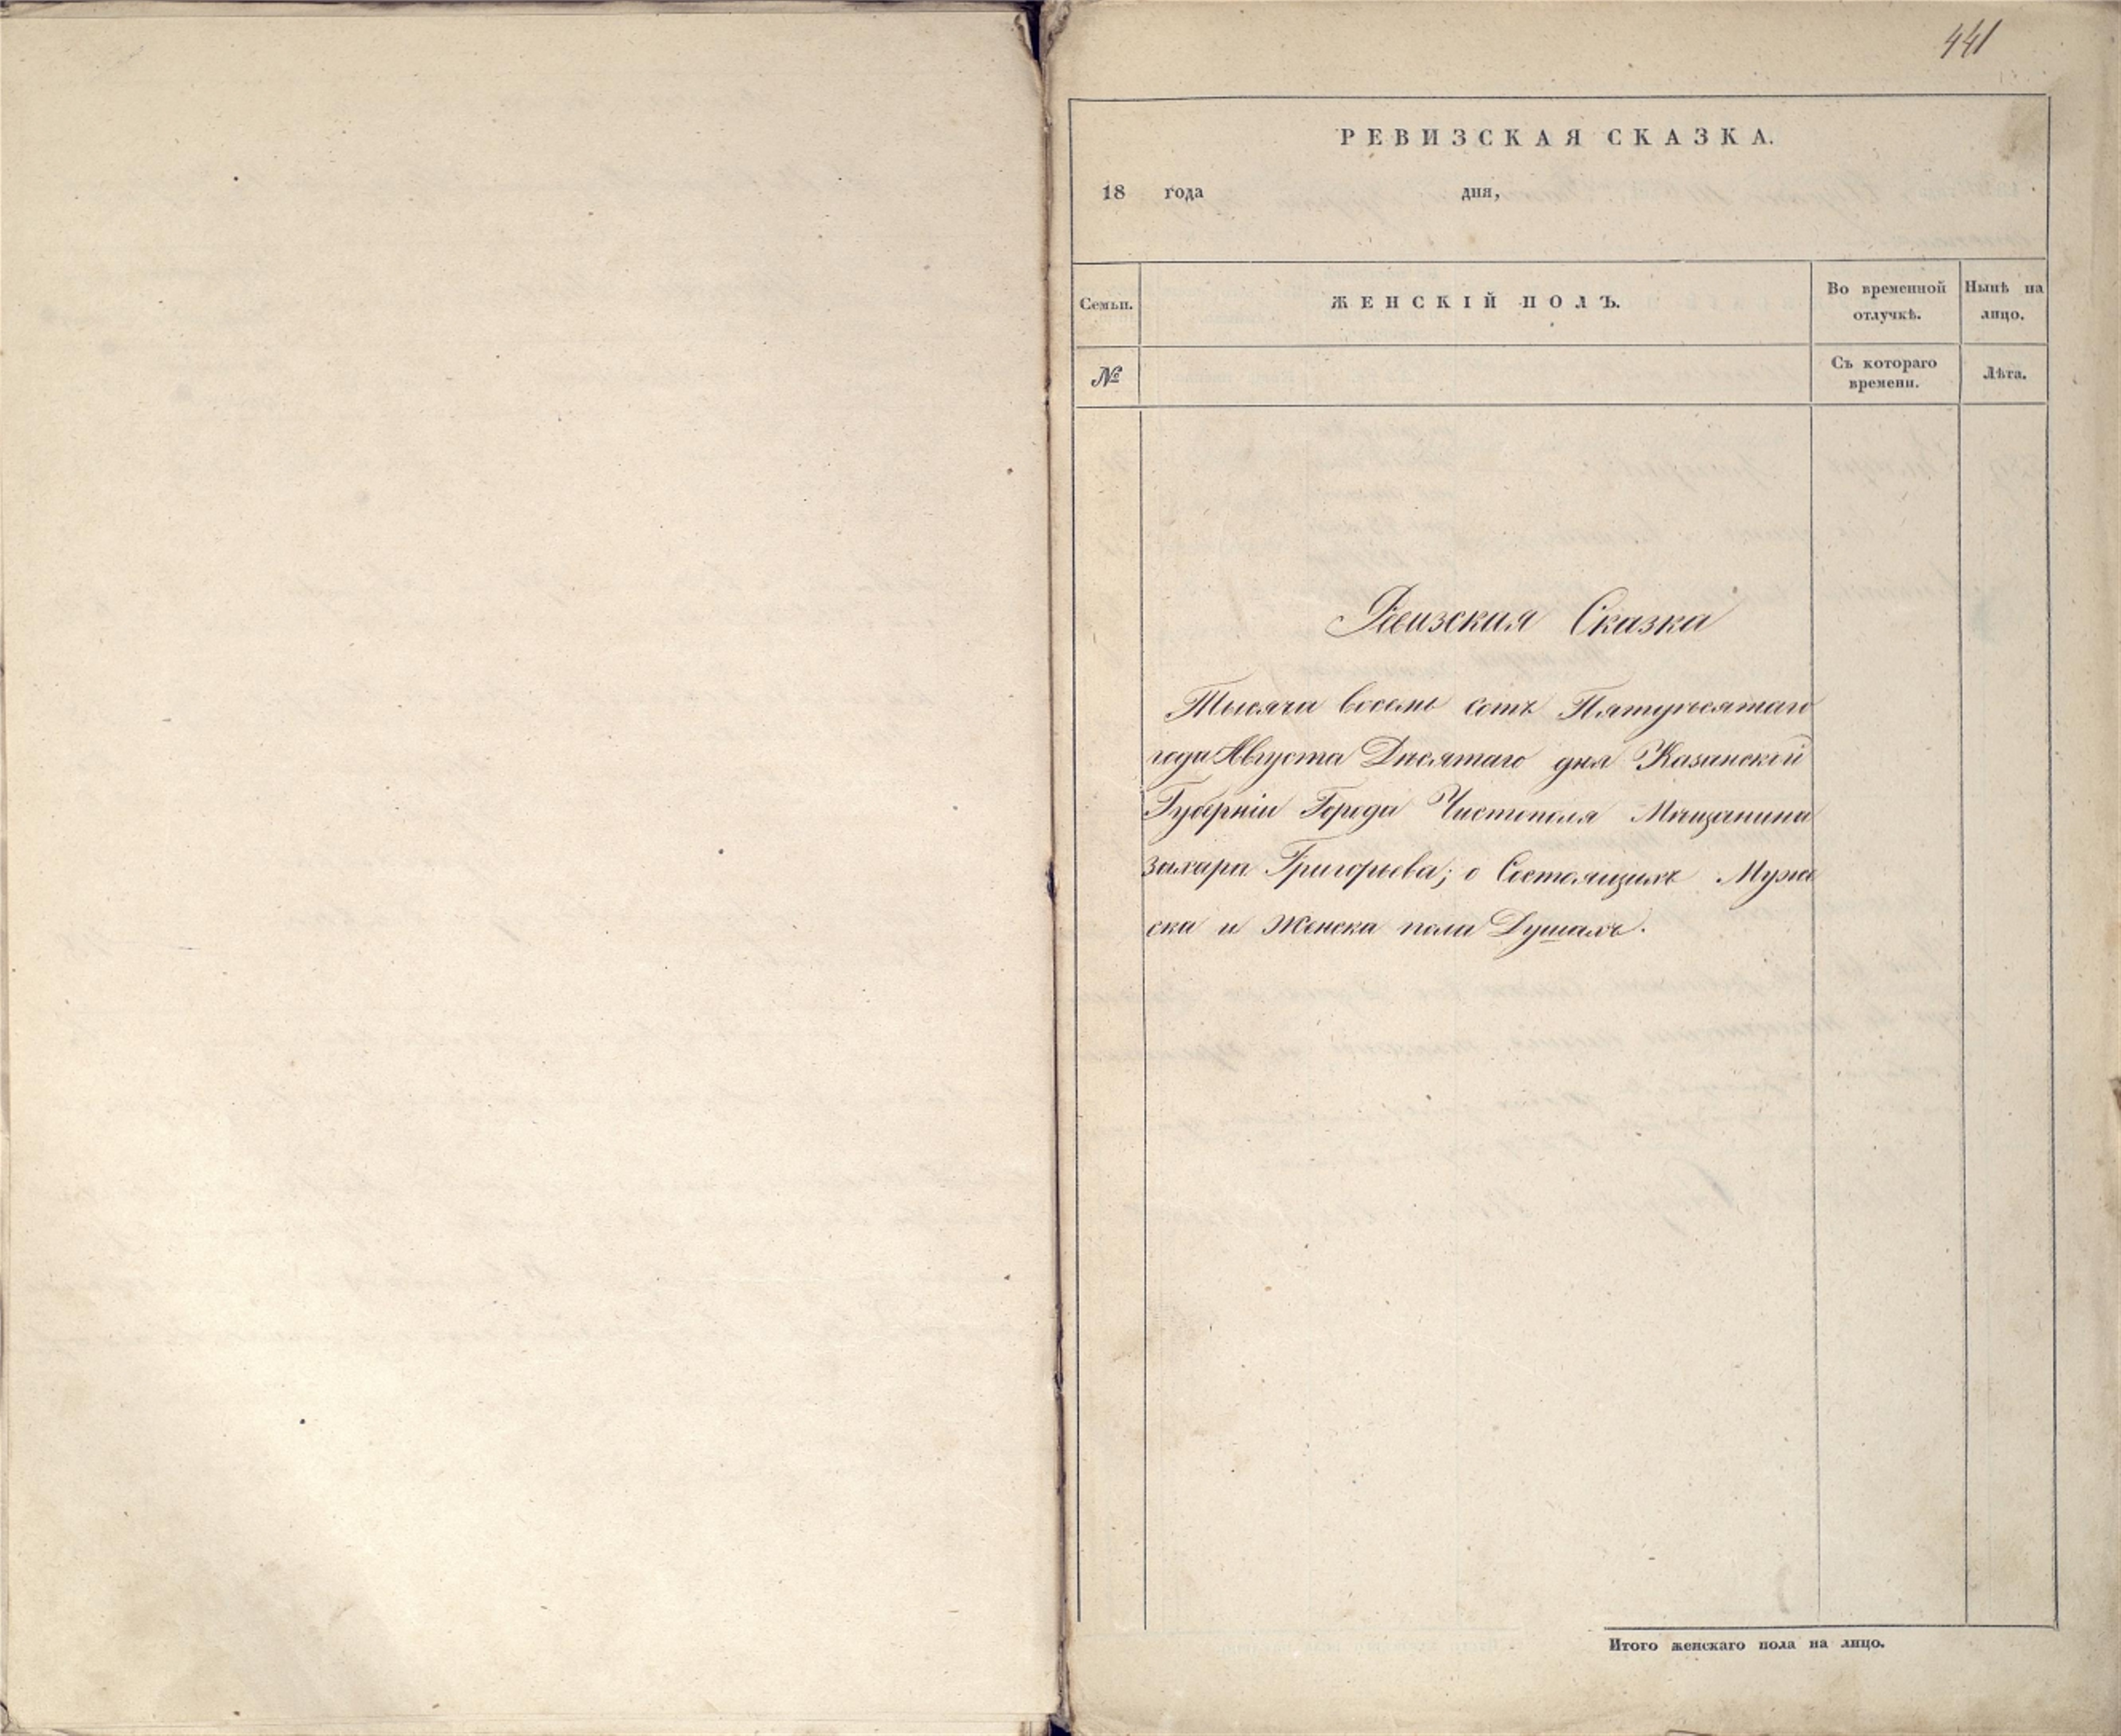 441
РЕВИЗСКАЯ СКАЗКА.
18 года дня,
Семьи.
ЖЕНСКІЙ ПОЛЪ.
Во временной отлучкѣ.
Нынѣ на лицо.
№
Съ котораго времени.
Лѣта.
Ревизская Сказка
Тысяча восемь сотъ Пятдесятаго
года Августа Десятаго дня Казанской
Губерніи Города Чистополя Мещанина
Захара Григорьева; о Состоящихъ Муже
ска и Женска пола Душахъ.
Итого женскаго пола на лицо.